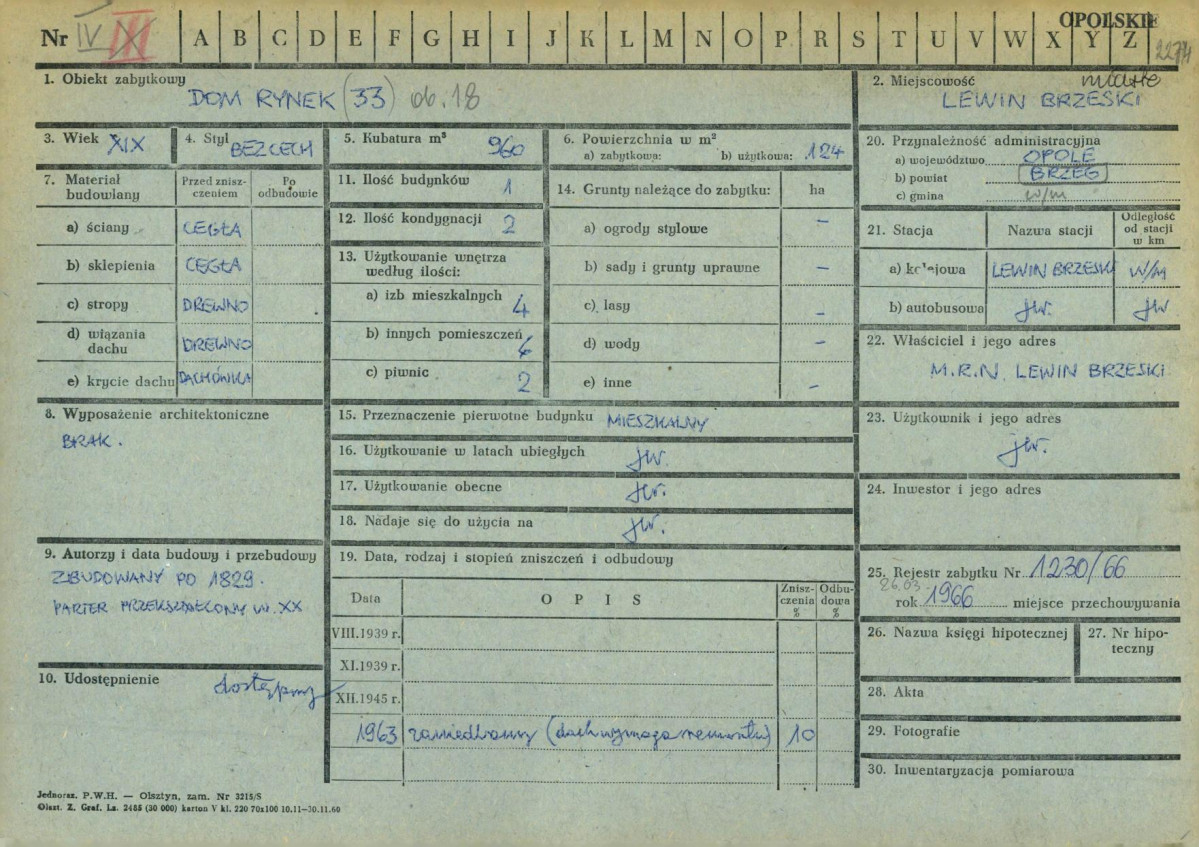 OPOLSKIE
Nr IV III A B C D E F G H I J K L M N O P R S T U V W X Y Z
1. Obiekt zabytkowy
DOM RYNEK (33) ob. 18
2. Miejscowość miasto
LEWIN BRZESKI
3. Wiek XIX
4. Styl BEZ CECH
5. Kubatura m³ 960
6. Powierzchnia w m²
a) zabytkowa: b) użytkowa: 124
20. Przynależność administracyjna
a) województwo OPOLE
b) powiat BRZEG
c) gmina w/m
7. Materiał budowlany
Przed zniszczeniem
Po odbudowie
a) ściany CEGŁA
b) sklepienia CEGŁA
c) stropy DREWNO
d) wiązania dachu DREWNO
e) krycie dachu DACHÓWKA
11. Ilość budynków 1
12. Ilość kondygnacji 2
13. Użytkowanie wnętrza
według ilości:
a) izb mieszkalnych 4
b) innych pomieszczeń
c) piwnic 2
14. Grunty należące do zabytku: ha
a) ogrody stylowe –
b) sady i grunty uprawne –
c) lasy –
d) wody –
e) inne –
21. Stacja
Nazwa stacji
Odległość
od stacji
w km
a) kolejowa LEWIN BRZESKI w/m
b) autobusowa jw. jw
22. Właściciel i jego adres
M.R.N. LEWIN BRZESKI
8. Wyposażenie architektoniczne
BRAK.
15. Przeznaczenie pierwotne budynku MIESZKALNY
16. Użytkowanie w latach ubiegłych jw.
17. Użytkowanie obecne jw.
18. Nadaje się do użycia na jw.
23. Użytkownik i jego adres
jw.
24. Inwestor i jego adres
9. Autorzy i data budowy i przebudowy
ZBUDOWANY PO 1829.
PARTER PRZEKSZTAŁCONY W. XX
10. Udostępnienie dostępny
19. Data, rodzaj i stopień zniszczeń i odbudowy
Data
O P I S
Zniszczenia %
Odbudowa %
VIII.1939 r.
XI.1939 r.
XII.1945 r.
1963 zaniedbany (dach wymaga remontu) 10
25. Rejestr zabytku Nr 1230/66
26.03.
rok 1966 miejsce przechowywania
26. Nazwa księgi hipotecznej
27. Nr hipoteczny
28. Akta
29. Fotografie
30. Inwentaryzacja pomiarowa
Jednoraz. P.W.H. — Olsztyn, zam. Nr 3215/S
Olszt. Z. Graf. Lz. 2485 (30 000) karton V kl. 220 70x100 10.11—30.11.60